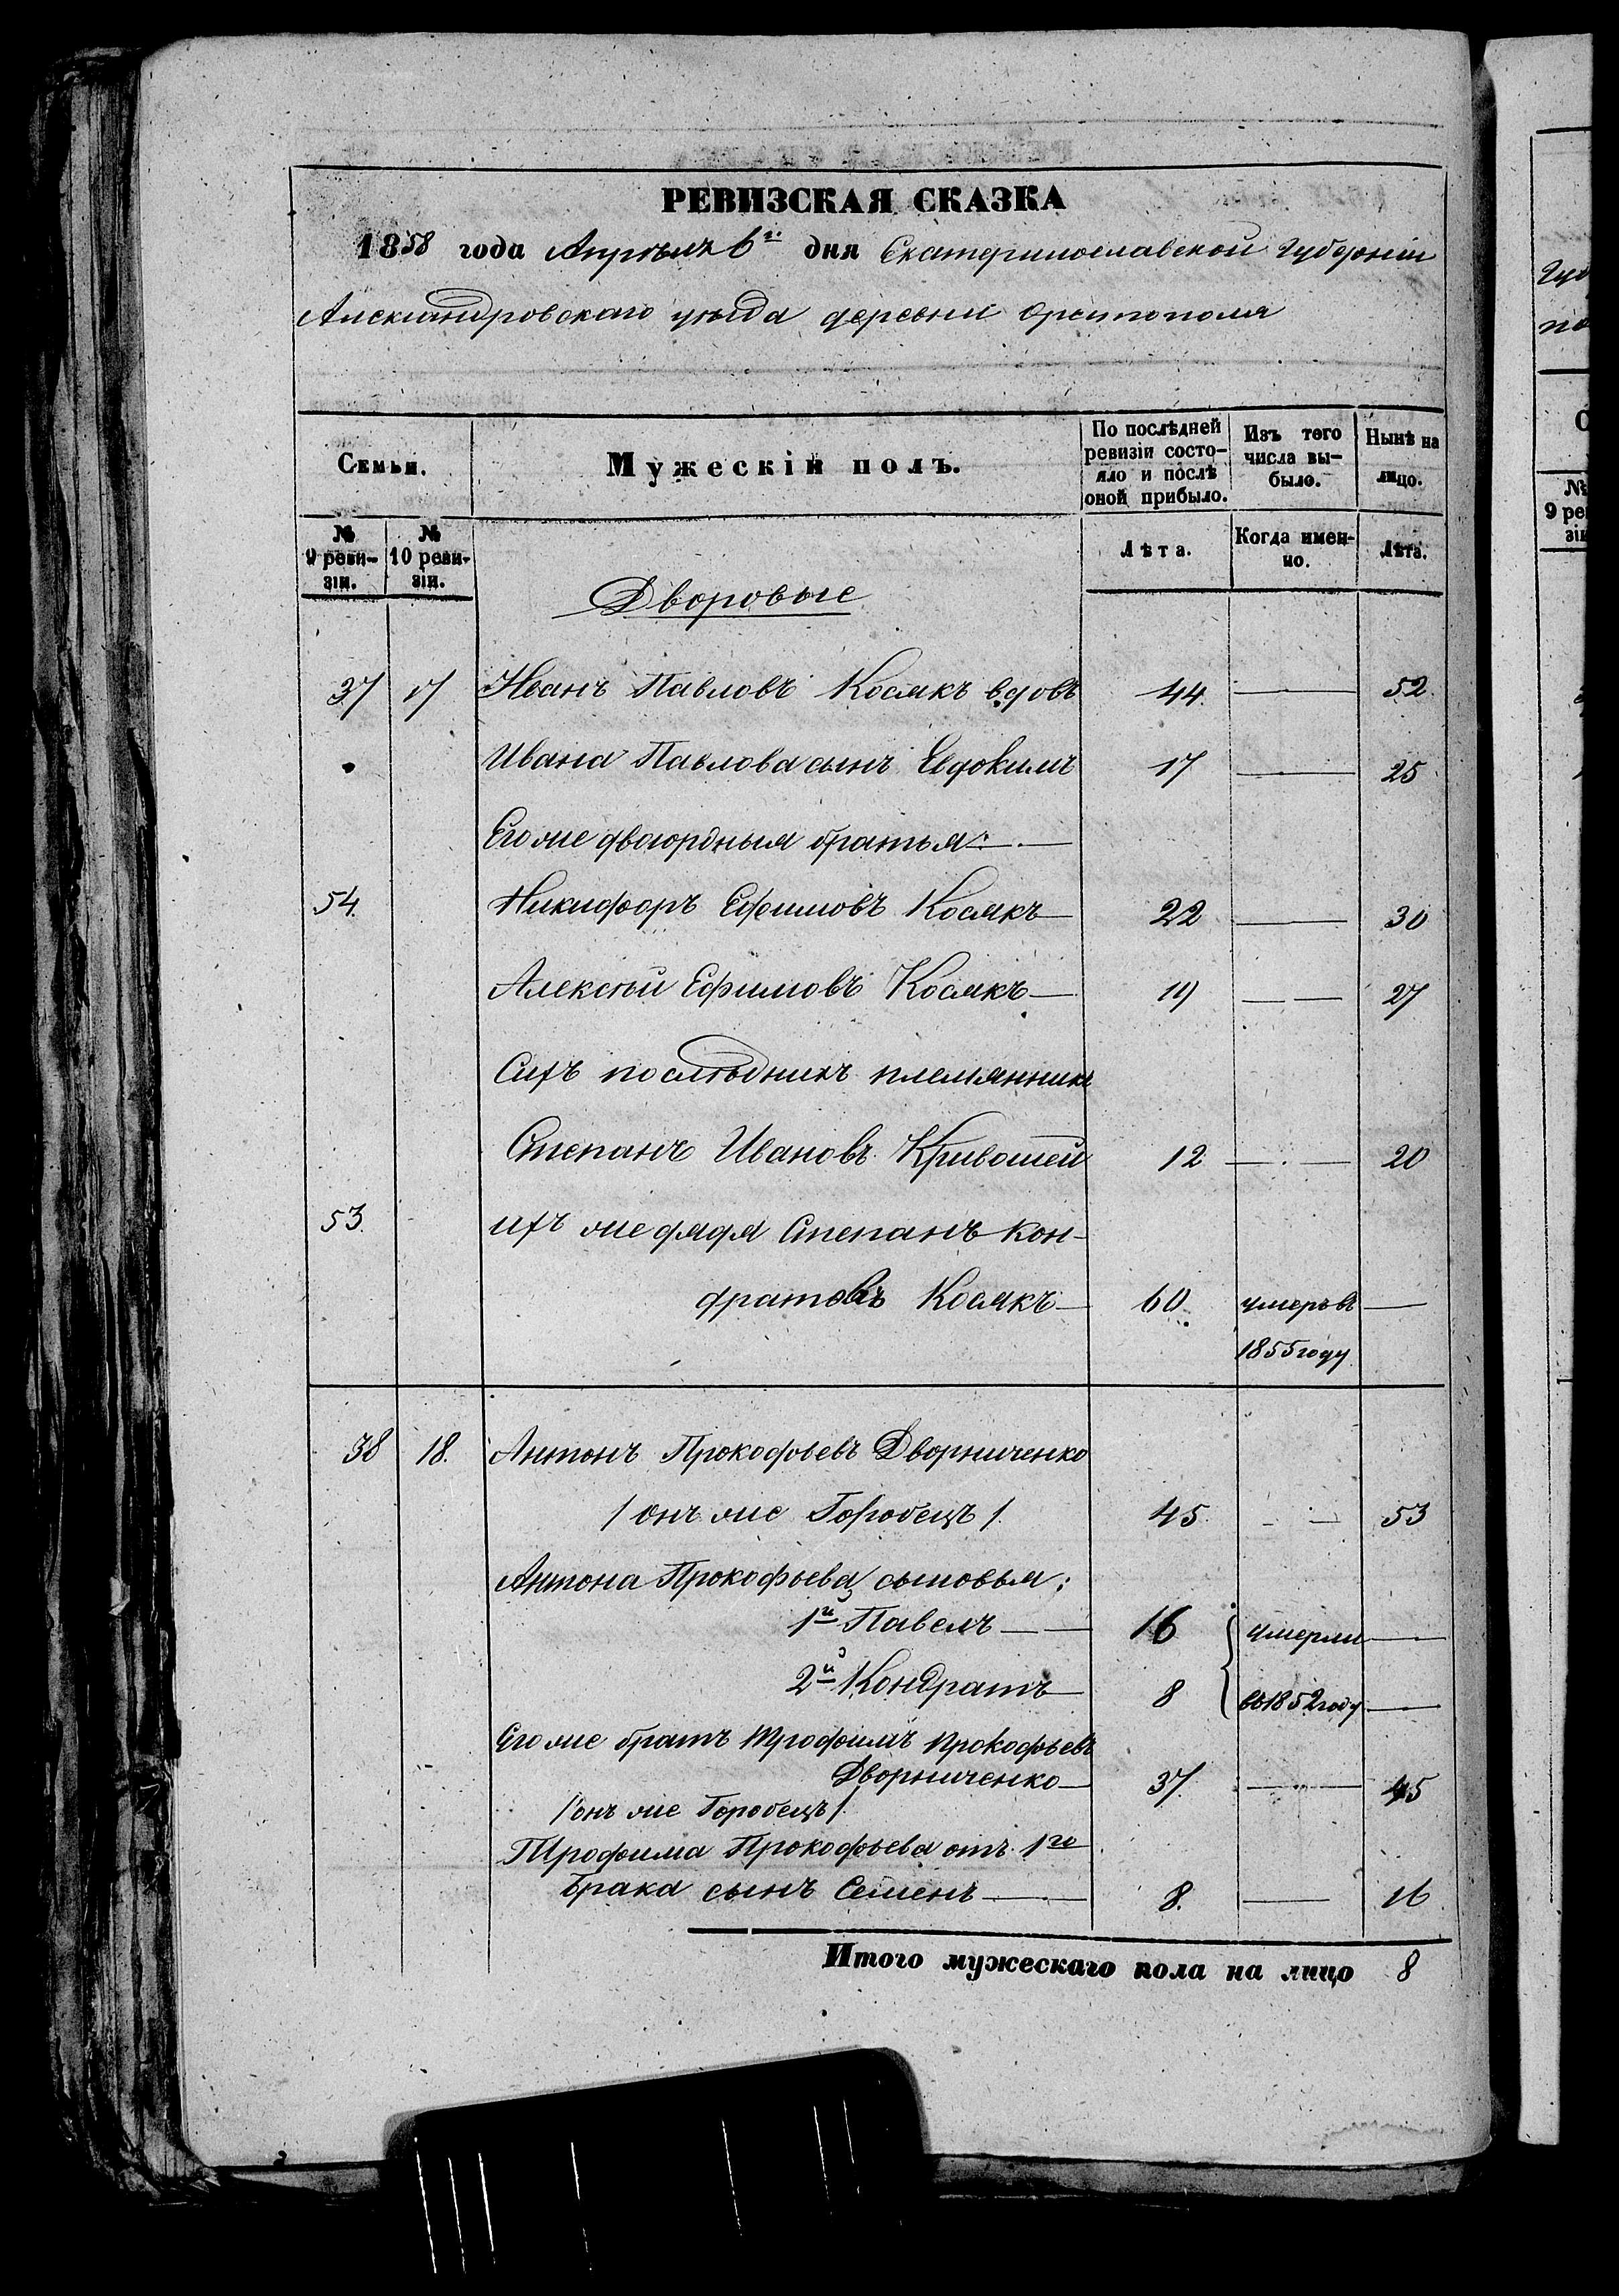 РЕВИЗСКАЯ СКАЗКА
1858 года Апрѣля 6го дня Екатеринославской губерніи
Александровскаго уѣзда деревни Орестополя
Семьи.
Мужескій полъ.
По послѣдней ревизіи состояло и послѣ оной прибыло.
Изъ того числа выбыло.
Нынѣ на лицо.
№ 9 ревизіи.
№ 10 ревизіи.
Лѣта.
Когда именно.
Лѣта.
Дворовые
37 17 Иванъ Павловъ Косякъ вдовъ 44. — 52.
Ивана Павлова сынъ Евдокимъ 17 — 25
Его же двоюрдныя братья:
54. Никифоръ Ефимовъ Косякъ — 22 — 30
Алексѣй Ефимовъ Косякъ — 19 — 27
Сихъ послѣднихъ племянникъ
Степанъ Ивановъ Кривошей 12 — 20
53. ихъ же дядя Степанъ Кон-
дратовъ Косякъ — 60. умеръ въ —
1855 году
38 18. Антонъ Прокофьевъ Дворниченко
/ онъ же Горобецъ /. 45. — 53
Антона Прокофьева сыновья:
1й Павелъ — 16 умерли —
2й Кондратъ — 8 въ 1852 году —
Его же братъ Трофимъ Прокофьевъ
Дворниченко — 37. — 45
/ онъ же Горобецъ /
Трофима Прокофьева отъ 1го
брака сынъ Семенъ — 8. — 16
Итого мужескаго пола на лицо 8
№
9 ре
зі